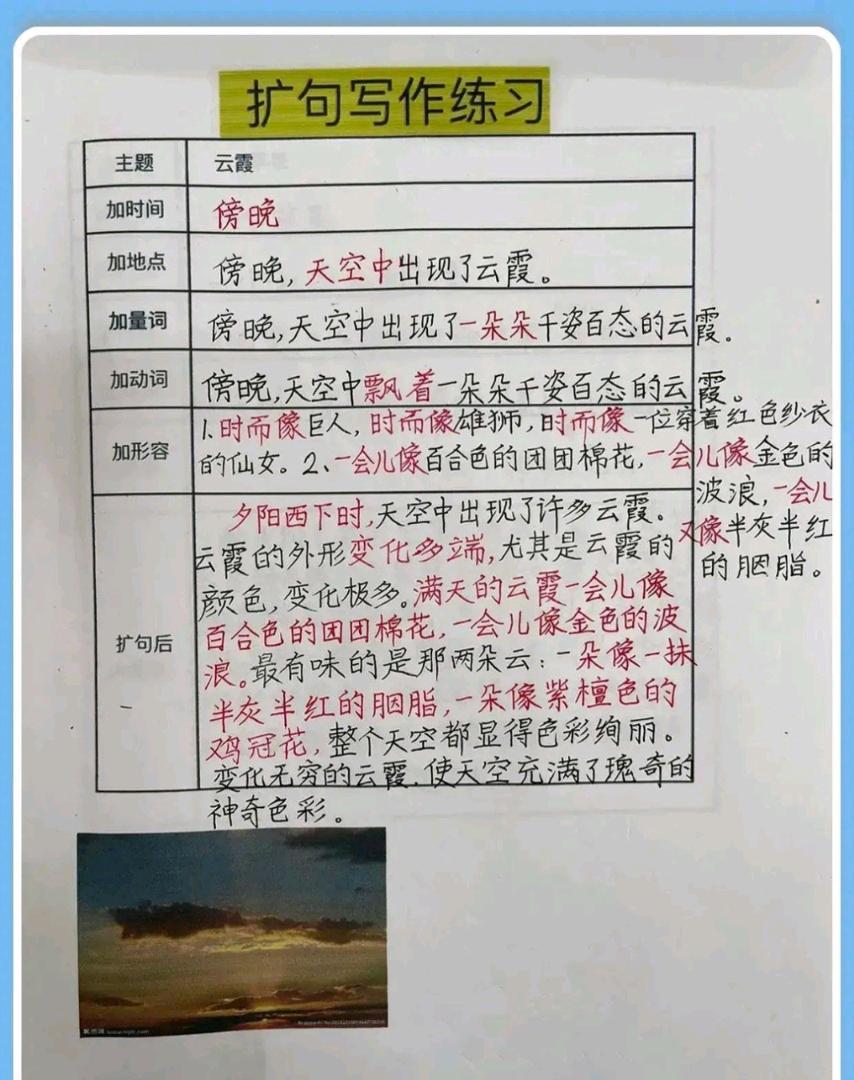 扩句写作练习
主题 云霞
加时间 傍晚
加地点 傍晚,天空中出现了云霞。
加量词 傍晚,天空中出现了一朵朵千姿百态的云霞。
加动词 傍晚,天空中飘着一朵朵千姿百态的云霞。
加形容 1.时而像巨人,时而像雄狮,时而像一位穿着红色纱衣
的仙女。2、一会儿像百合色的团团棉花,一会儿像金色的
波浪,一会儿
又像半灰半红
的胭脂。
扩句后
夕阳西下时,天空中出现了许多云霞。
云霞的外形变化多端,尤其是云霞的
颜色,变化极多。满天的云霞一会儿像
百合色的团团棉花,一会儿像金色的波
浪。最有味的是那两朵云:一朵像一抹
半灰半红的胭脂,一朵像紫檀色的
鸡冠花,整个天空都显得色彩绚丽。
变化无穷的云霞.使天空充满了瑰奇的
神奇色彩。